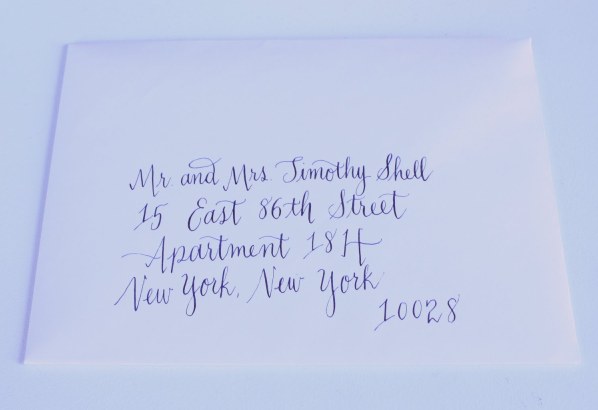 Mr. and Mrs. Timothy Shell
15 East 86th Street
Apartment 18H
New York, New York
10028